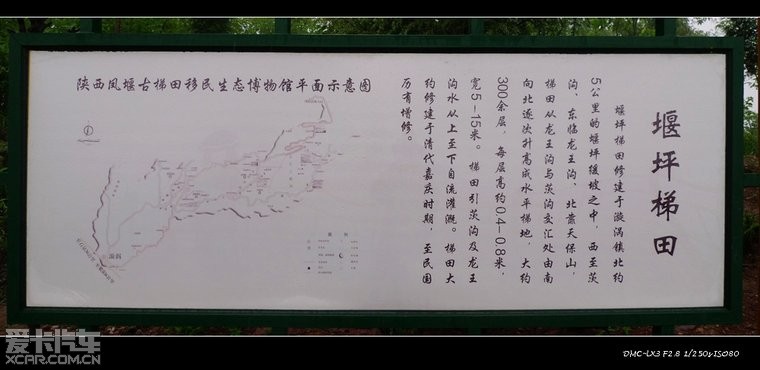 陕西凤堰古梯田移民生态博物馆平面示意图
堰坪梯田
堰坪梯田修建于漩涡镇北约
5公里的堰坪缓坡之中，西至茨
沟、东临龙王沟，北靠天保山，
梯田从龙王沟与茨沟交汇处由南
向北逐次升高成水平梯地，大约
300余层，每层高约0.4—0.8米，
宽5—15米。梯田引茨沟及龙王
沟水从上至下自流灌溉。梯田大
约修建于清代嘉庆时期，至民国
历有增修。
漩涡
爱卡汽车
XCAR.COM.CN
DMC-LX3 F2.8 1/250s ISO80